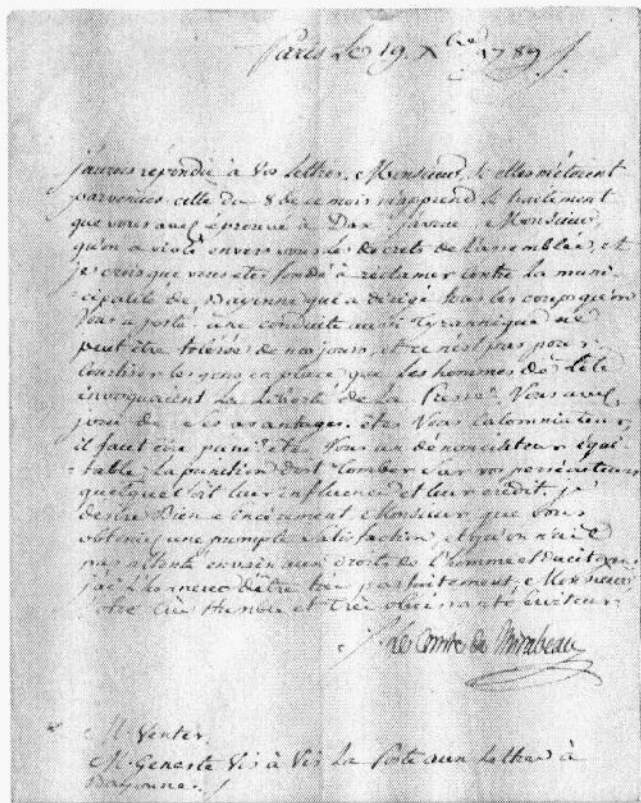 Paris le 19. Xbre 1789./.
j'aurois répondu à vos lettres, Monsieur, si elles m'étoient
parvenues. celle du 8 de ce mois m'apprend le traitement
que vous avez éprouvé à Dax. j'avoue, Monsieur,
qu'on a violé envers vous les decrets de l'assemblée, et
je crois que vous etes fondé à réclamer contre la muni-
=cipalité de Bayonne qui a dirigé tous les coups qu'on
vous a porté. une conduite aussi tyrannique ne
peut être tolérée de nos jours, et ce n'est pas pour
les gens en place que les hommes de
invoquaient la Liberté de la Presse. Vous avez
joui de ses avantages. êtes vous calomniateur,
il faut être puni. êtes vous un dénonciateur équi-
=table, la punition doit tomber sur vos persécuteurs
quelque soit leur influence et leur crédit. je
desire bien sincèrement Monsieur, que vous
obteniez une prompte satisfaction, et qu'on n'aie
pas attenté envain aux droits de l'homme et du citoyen.
j'ai l'honneur d'être très parfaitement, Monsieur
Votre très humble et très obéissant serviteur,
le Comte de Mirabeau
M. Venter,
M. Geneste vis à vis la Poste aux Lettres à
Bayonne./.